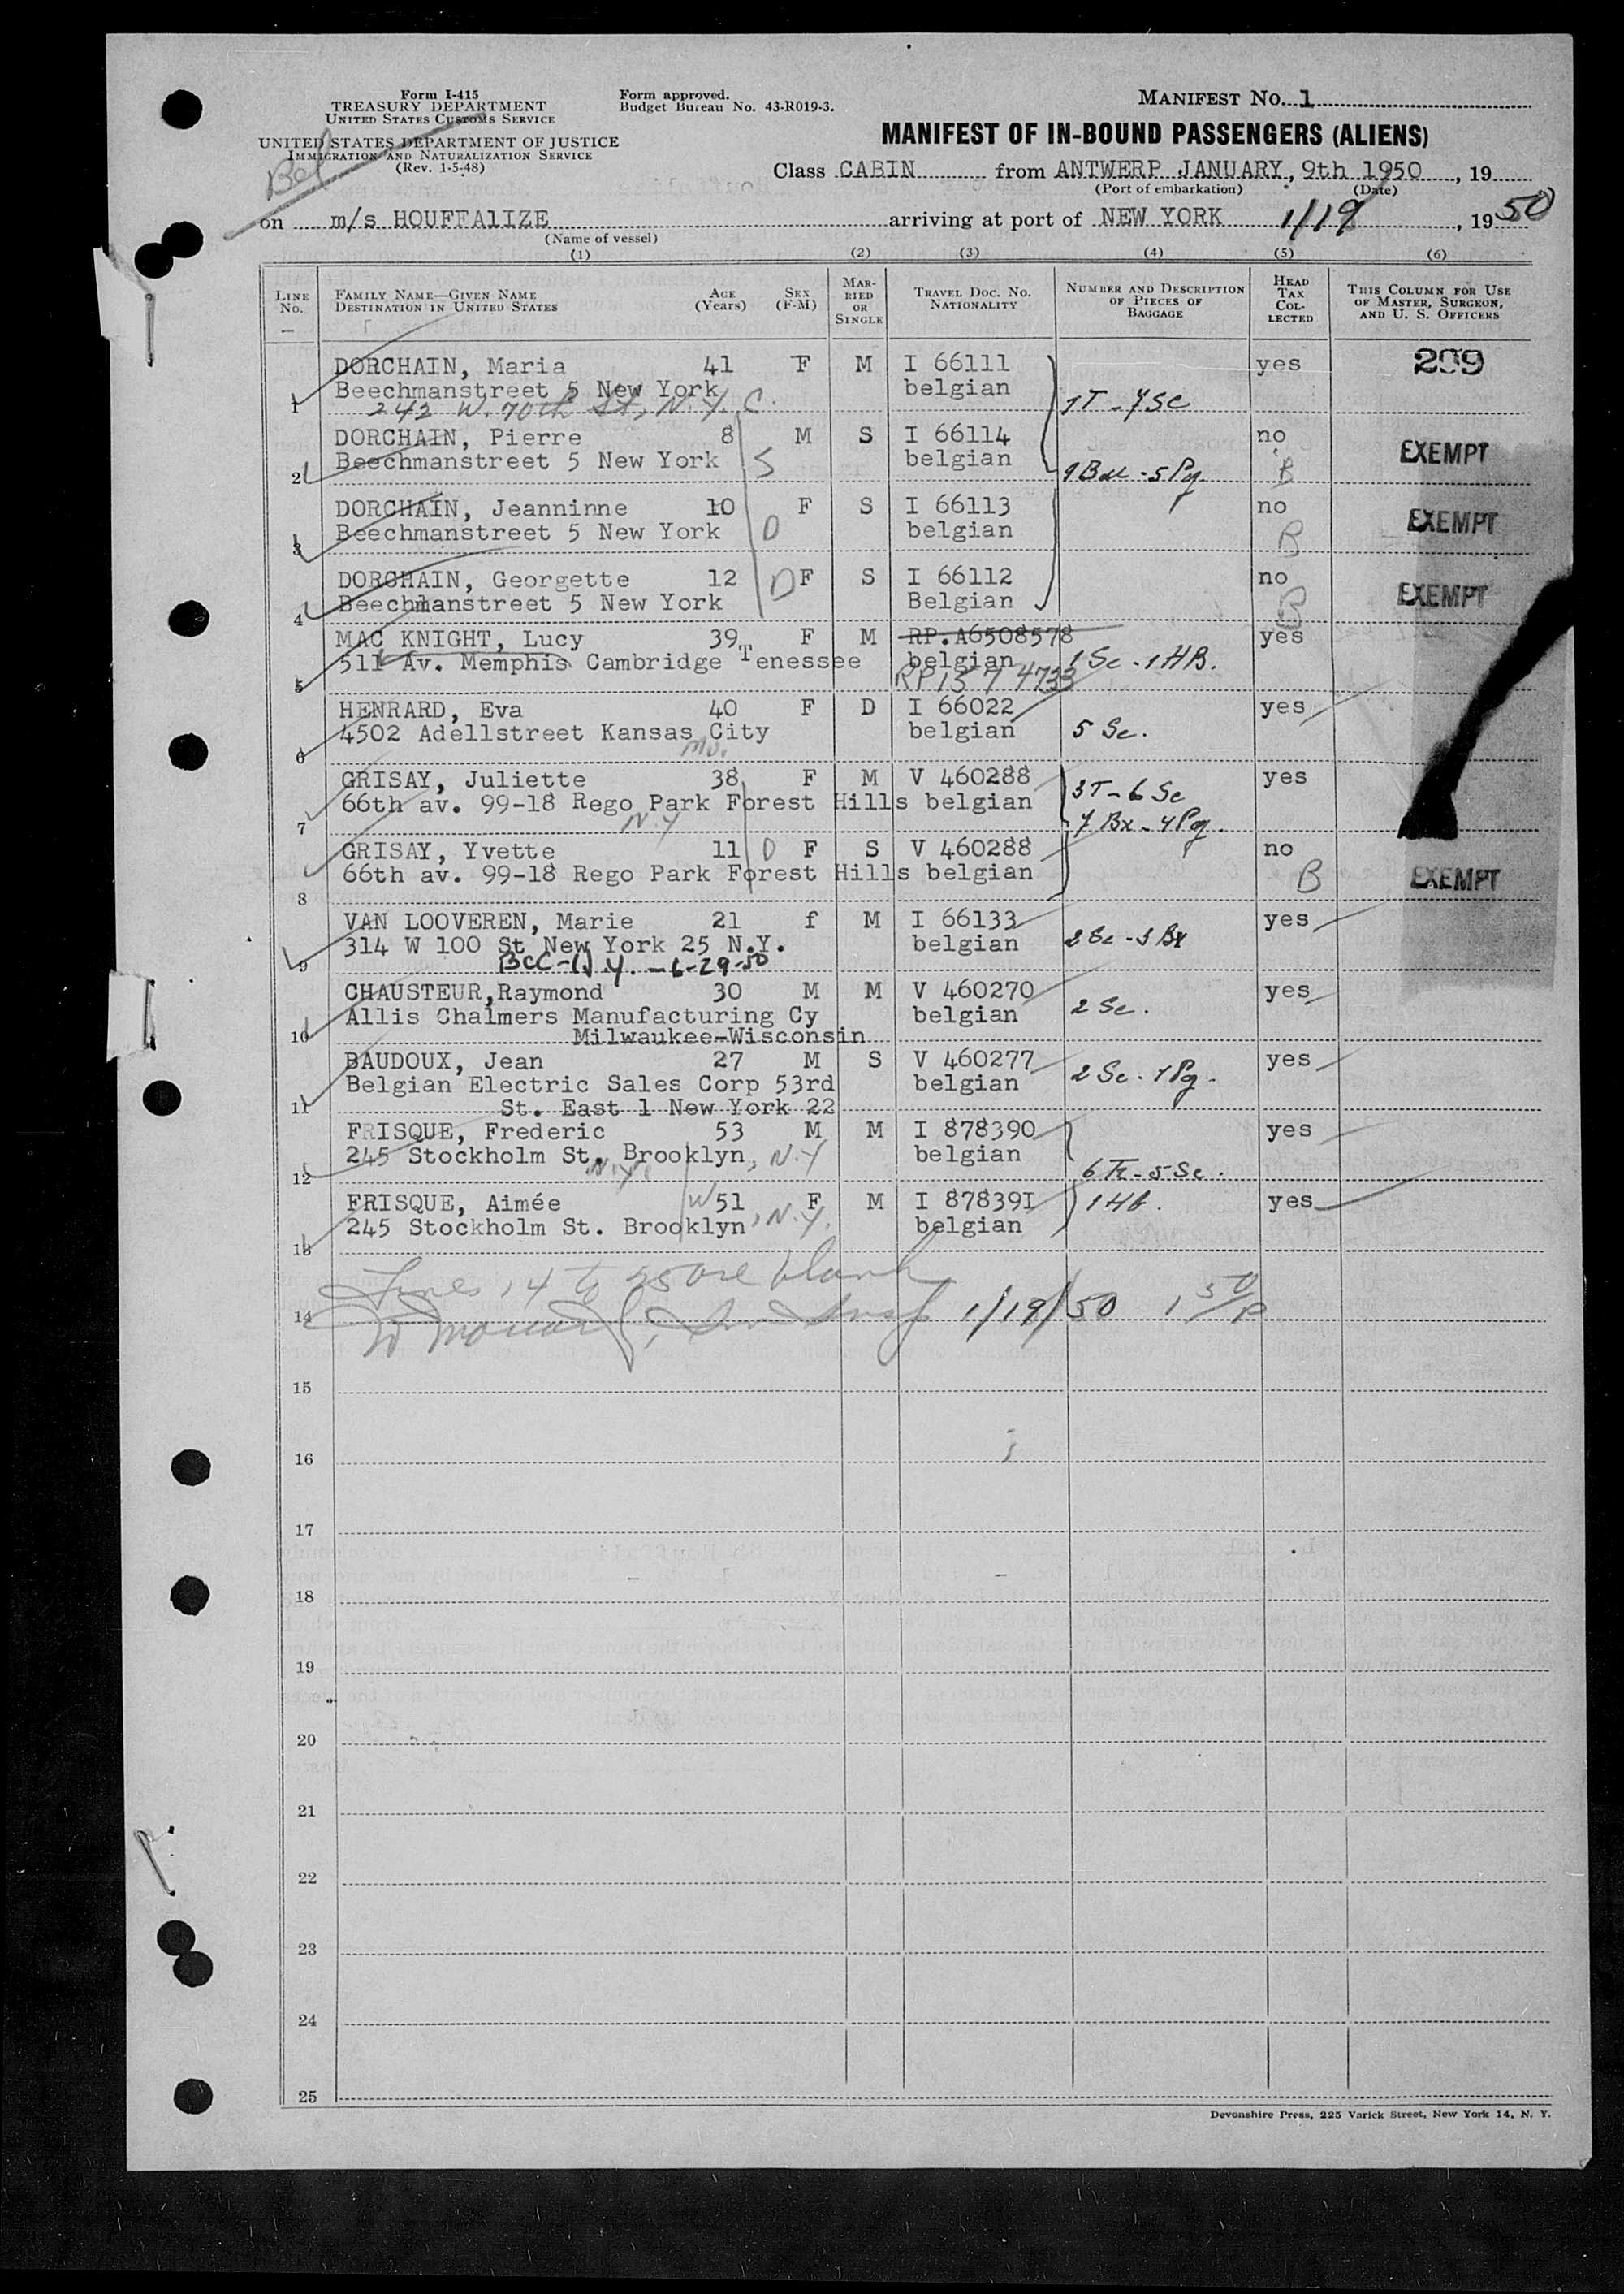 Form I-415
TREASURY DEPARTMENT
UNITED STATES CUSTOMS SERVICE
UNITED STATES DEPARTMENT OF JUSTICE
IMMIGRATION AND NATURALIZATION SERVICE
(Rev. 1-5-48)
Bel
Form approved.
Budget Bureau No. 43-R019-3.
MANIFEST NO. 1
MANIFEST OF IN-BOUND PASSENGERS (ALIENS)
Class CABIN from ANTWERP JANUARY, 9th 1950, 19
(Port of embarkation) (Date)
on m/s HOUFFAlIZE arriving at port of NEW YORK 1/19, 1950
(Name of vessel)
(1) (2) (3) (4) (5) (6)
LINE NO. FAMILY NAME—GIVEN NAME DESTINATION IN UNITED STATES AGE (Years) SEX (F-M) MARRIED OR SINGLE TRAVEL DOC. NO. NATIONALITY NUMBER AND DESCRIPTION OF PIECES OF BAGGAGE HEAD TAX COLLECTED THIS COLUMN FOR USE OF MASTER, SURGEON, AND U. S. OFFICERS
DORCHAIN, Maria 41 F M I 66111 yes 299
Beechmanstreet 5 New York belgian
1 242 W. 70th St, N.Y.C. 1T-7Sc
DORCHAIN, Pierre 8 M S I 66114 no EXEMPT
2 Beechmanstreet 5 New York S belgian 9 Bdl - 5 Pg. B
DORCHAIN, Jeanninne 10 F S I 66113 no EXEMPT
3 Beechmanstreet 5 New York D belgian B
DORCHAIN, Georgette 12 D F S I 66112 no EXEMPT
4 Beechmanstreet 5 New York Belgian B
MAC KNIGHT, Lucy 39 F M RP.A6508578 yes
511 Av. Memphis Cambridge Tenessee belgian 1 Sc - 1 HB.
5 RP 157 4733
HENRARD, Eva 40 F D I 66022 yes
4502 Adellstreet Kansas City belgian 5 Sc.
6 Mo.
GRISAY, Juliette 38 F M V 460288 3T - 6 Sc yes
66th av. 99-18 Rego Park Forest Hills belgian
7 N.Y 7 Bx - 4 Pg.
GRISAY, Yvette 11 D F S V 460288 no
66th av. 99-18 Rego Park Forest Hills belgian B EXEMPT
8
VAN LOOVEREN, Marie 21 f M I 66133 yes
314 W 100 St New York 25 N.Y. belgian 2 Sc - 3 Bx
9 BCC-N.Y. - 6-29-50
CHAUSTEUR,Raymond 30 M M V 460270 yes
Allis Chalmers Manufacturing Cy belgian 2 Sc.
10 Milwaukee-Wisconsin
BAUDOUX, Jean 27 M S V 460277 yes
Belgian Electric Sales Corp 53rd belgian 2 Sc - 1 Pg.
11 St. East 1 New York 22
FRISQUE, Frederic 53 M M I 878390 yes
245 Stockholm St. Brooklyn, N.Y belgian
12 N.Y. 6 Tr - 5 Sc.
FRISQUE, Aimée W 51 F M I 87839I 1 Hb. yes
245 Stockholm St. Brooklyn, N.Y. belgian
13
Lines 14 to 25 are blank
14 1/19/50 1 50/P
15
16
17
18
19
20
21
22
23
24
25
Devonshire Press, 225 Varick Street, New York 14, N. Y.